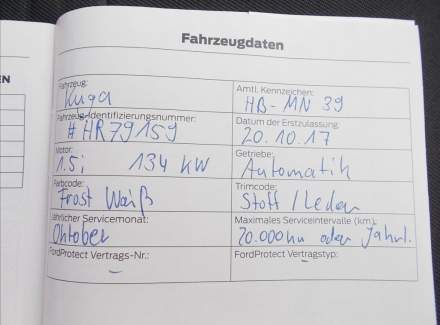 Fahrzeugdaten
EN
Fahrzeug:
Kuga
Amtl. Kennzeichen:
HB-MN 39
Fahrzeug-Identifizierungsnummer:
# HR79159
Datum der Erstzulassung:
20.10.17
Motor:
1.5i 134 kW
Getriebe:
Automatik
Farbcode:
Frost Weiß
Trimcode:
Stoff / Leder
Jährlicher Servicemonat:
Oktober
Maximales Serviceintervalle (km):
20.000km oder Jährl.
FordProtect Vertrags-Nr.:
–
FordProtect Vertragstyp:
–